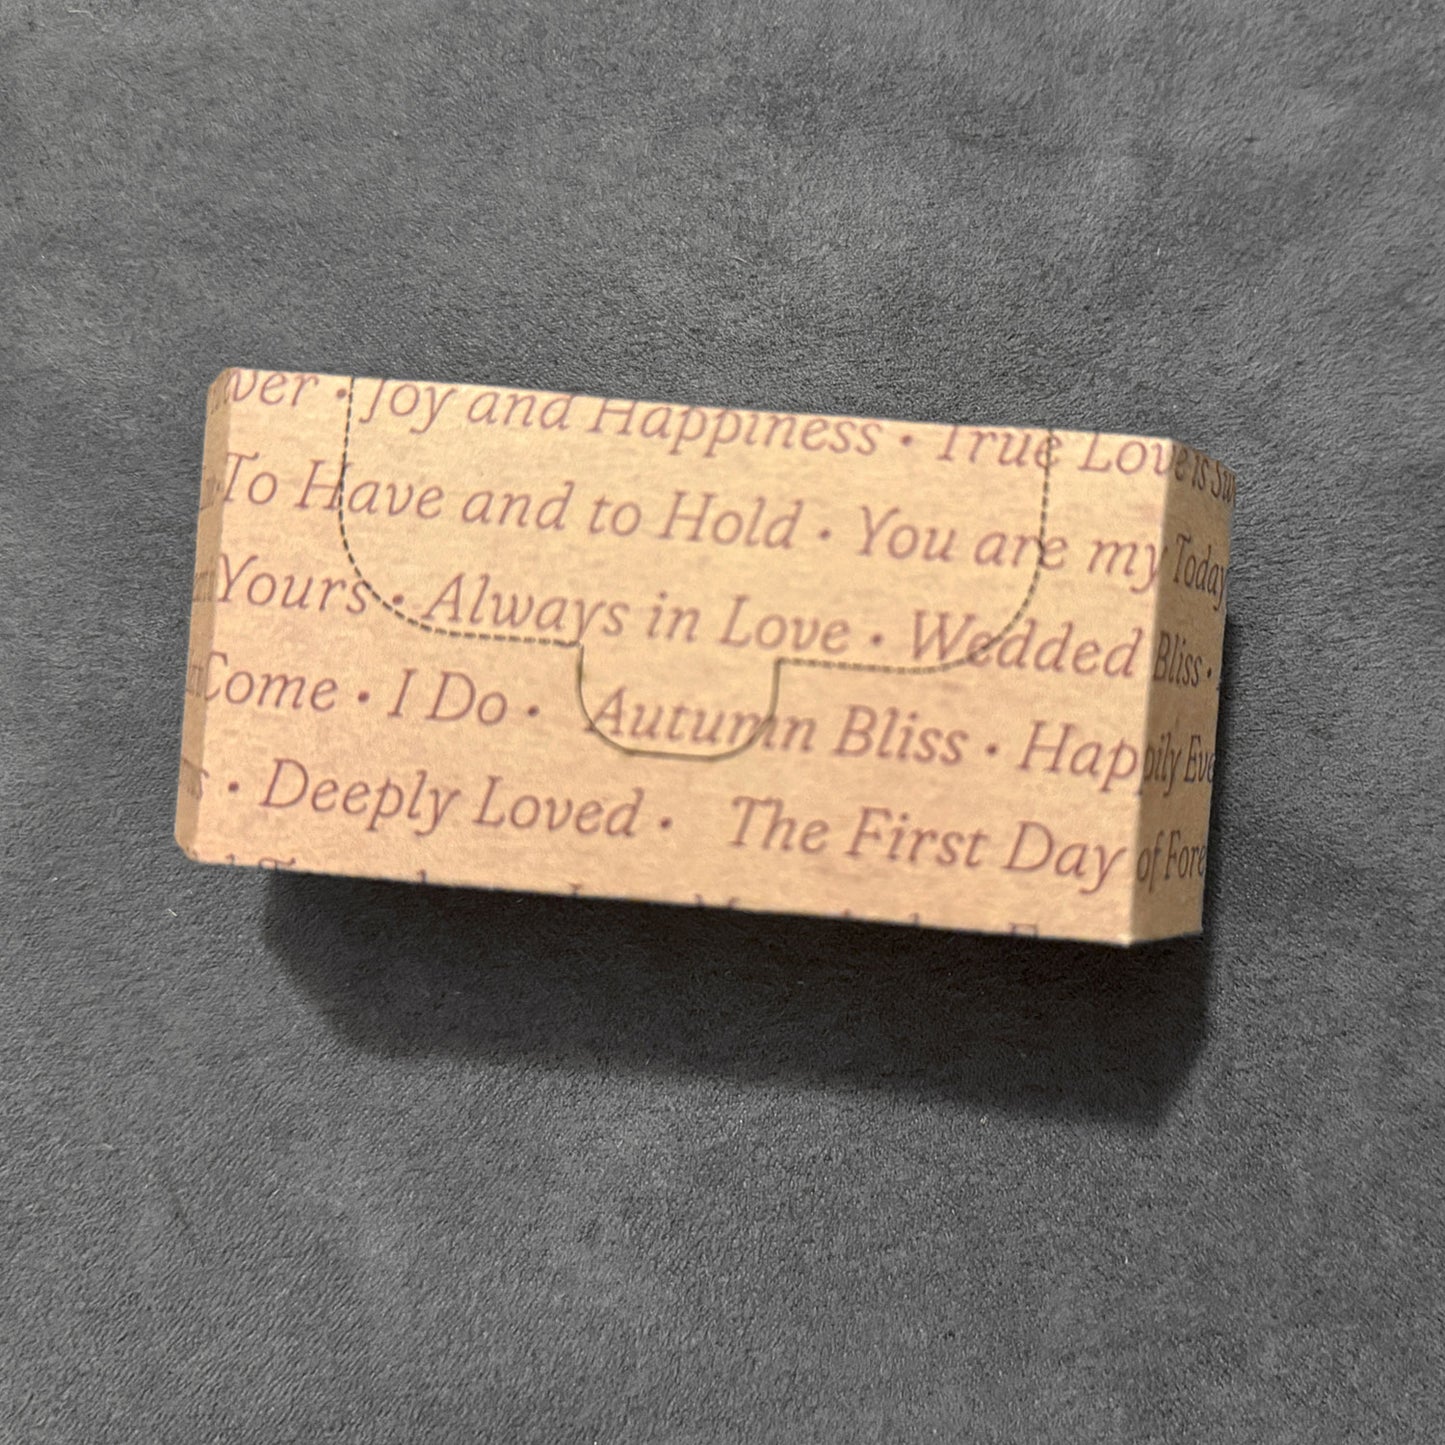 ver • Joy and Happiness • True Love is Sw
To Have and to Hold • You are my Today
Yours • Always in Love • Wedded Bliss •
Come • I Do • Autumn Bliss • Happily Eve
• Deeply Loved • The First Day of Fore